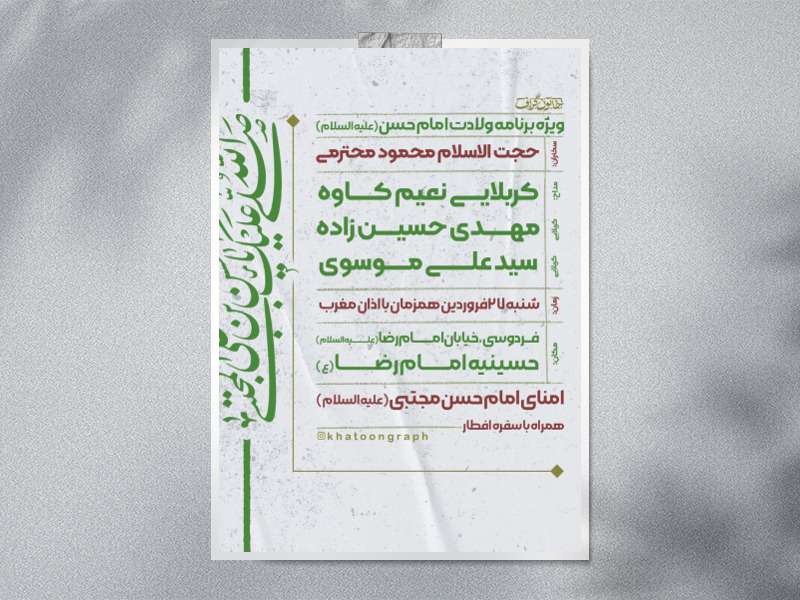 خاتون گراف
ویژه برنامه ولادت امام حسن (علیه السلام)
سخنران:
حجت الاسلام محمود محترمی
مداح:
کربلایی نعیم کاوه
کربلایی
مهدی حسین زاده
کربلایی
سید علی موسوی
زمان:
شنبه ۲۷ فروردین همزمان با اذان مغرب
مکان:
فردوسی، خیابان امام رضا (علیه السلام)
حسینیه امام رضا (ع)
امنای امام حسن مجتبی (علیه السلام)
همراه با سفره افطار
khatoongraph
صلی الله علیک یا حسن بن علی المجتبی